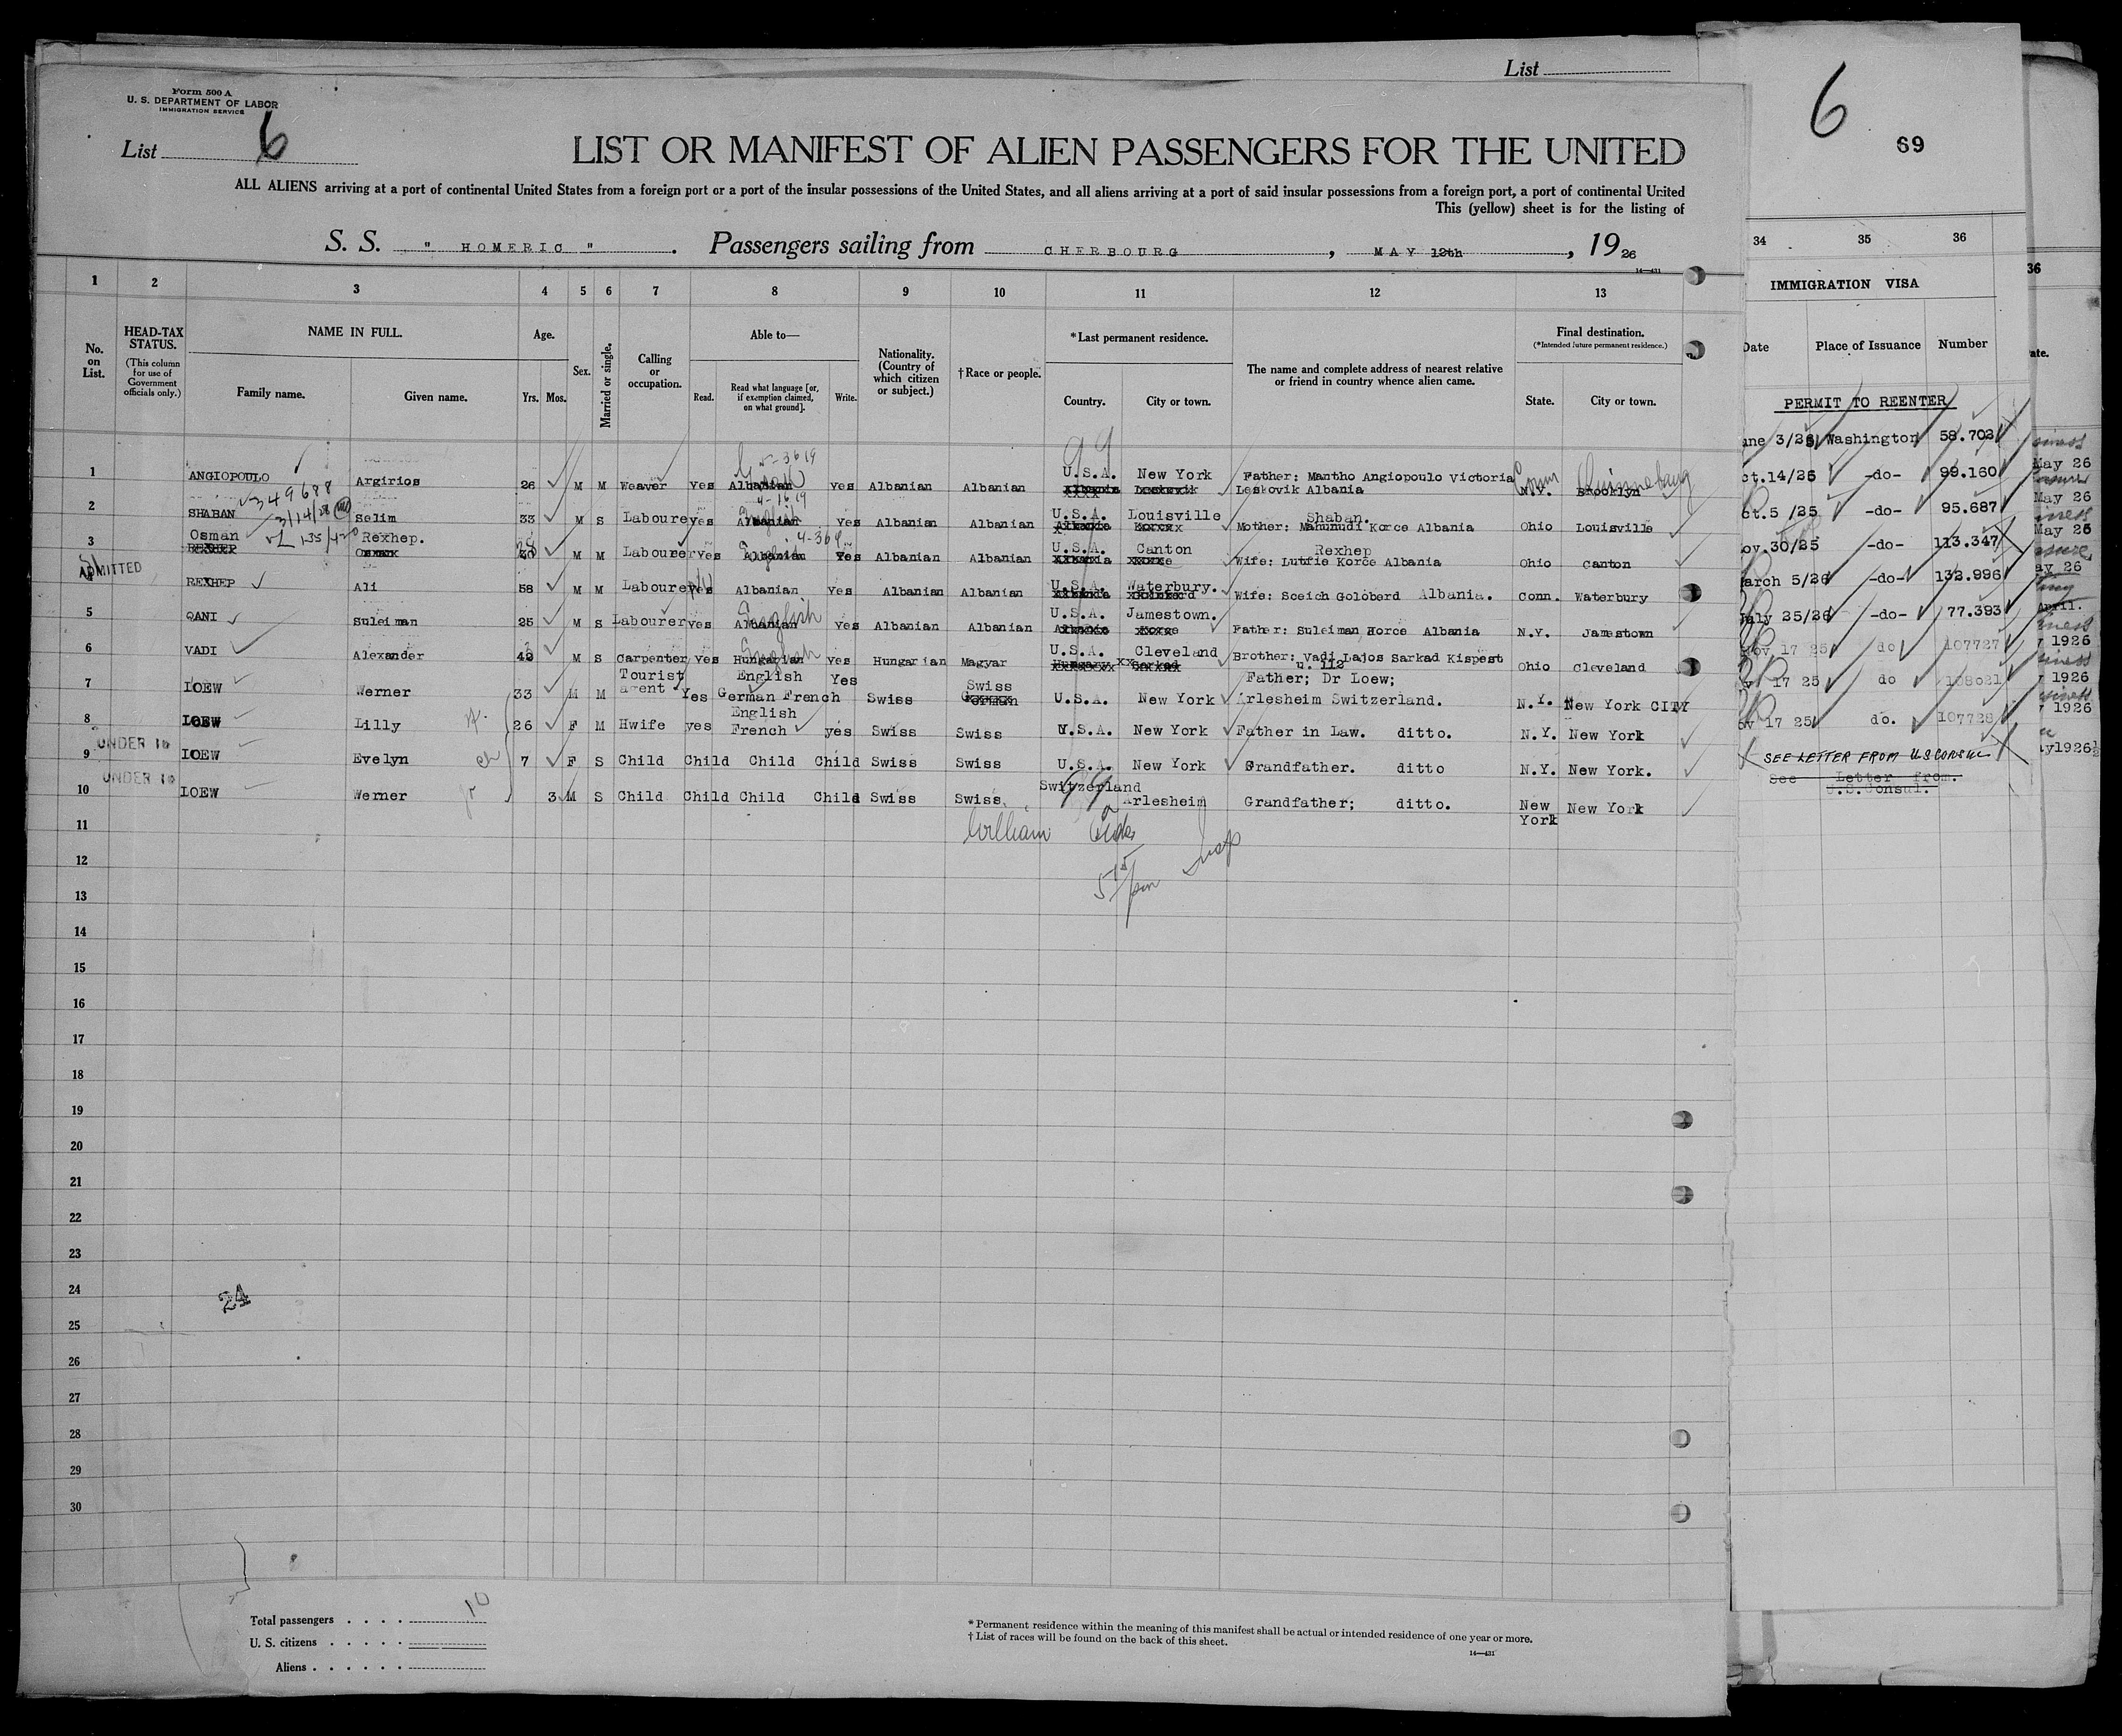 List
Form 500 A
U. S. DEPARTMENT OF LABOR
IMMIGRATION SERVICE
List 6
LIST OR MANIFEST OF ALIEN PASSENGERS FOR THE UNITED
ALL ALIENS arriving at a port of continental United States from a foreign port or a port of the insular possessions of the United States, and all aliens arriving at a port of said insular possessions from a foreign port, a port of continental United
This (yellow) sheet is for the listing of
S. S. " HOMERIC " . Passengers sailing from CHERBOURG , MAY 12th , 19 26
14—431
1 2 3 4 5 6 7 8 9 10 11 12 13
No. on List.
HEAD-TAX STATUS.
(This column for use of Government officials only.)
NAME IN FULL.
Family name. Given name.
Age.
Yrs. Mos.
Sex.
Married or single.
Calling or occupation.
Able to—
Read. Read what language [or, if exemption claimed, on what ground]. Write.
Nationality. (Country of which citizen or subject.)
†Race or people.
*Last permanent residence.
Country. City or town.
The name and complete address of nearest relative or friend in country whence alien came.
Final destination.
(*Intended future permanent residence.)
State. City or town.
99
1 ANGIOPOULO Argirios 26 M M Weaver yes Albanian yes Albanian Albanian U.S.A. New York Father: Mantho Angiopoulo Victoria Leskovik Albania N.Y. Brooklyn Conn Quinnebaug
349688
3/14/28
2 SHABAN Selim 33 M S Labourer yes Albanian English yes Albanian Albanian U.S.A. Louisville Mother: Mahmudi Shaban. Korce Albania Ohio Louisville
3 Osman Rexhep. M M Labourer yes Albanian English Yes Albanian Albanian U.S.A. Canton Wife: Lutfie Rexhep Korce Albania Ohio Canton
ADMITTED
REXHEP Ali 58 M M Labourer yes Albanian yes Albanian Albanian U.S.A. Waterbury. Wife: Sceich Goloberd Albania. Conn. Waterbury
5 QANI Suleiman 25 M S Labourer yes Albanian English yes Albanian Albanian U.S.A. Jamestown. Father: Suleiman Korce Albania N.Y. Jamestown
6 VADI Alexander 42 M S Carpenter yes Hungarian English yes Hungarian Magyar U.S.A. Cleveland Brother: Vadi Lajos Sarkad Kispest u. 112 Ohio Cleveland
7 LOEW Werner 33 M M Tourist agent Yes English German French Yes Swiss Swiss U.S.A. New York Father; Dr Loew; Arlesheim Switzerland. N.Y. New York CITY
8 LOEW Lilly 26 F M Hwife yes English French yes Swiss Swiss U.S.A. New York Father in Law. ditto. N.Y. New York
UNDER 16
9 LOEW Evelyn 7 F S Child Child Child Child Swiss Swiss U.S.A. New York Grandfather. ditto N.Y. New York.
UNDER 16
10 LOEW Werner 3 M S Child Child Child Child Swiss Swiss Switzerland Arlesheim Grandfather; ditto. New York New York
11
William
12
13
5 15/pm Insp
14
15
16
17
18
19
20
21
22
23
24
24
25
26
27
28
29
30
Total passengers . . . . 10
U. S. citizens . . . . .
Aliens . . . . . .
* Permanent residence within the meaning of this manifest shall be actual or intended residence of one year or more.
† List of races will be found on the back of this sheet.
14—431
6
69
34 35 36
IMMIGRATION VISA
Date Place of Issuance Number
PERMIT TO REENTER
Washington 58.702
ct.14/25 -do- 99.160
ct.5 /25 -do- 95.687
ov.30/25 -do- 113.347
arch 5/26 -do- 132.996
uly 25/26 -do- 77.393
ov 17 25 do 107727
17 25 do 108021
ov 17 25 do. 107728
SEE LETTER FROM U S CONSUL
See Letter from.
U.S.Consul.
36
ate.
May 26
May 26
May 26
ay 26
April.
1926
1926
1926
y1926